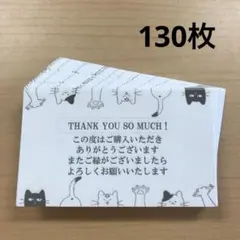 130枚
THANK YOU SO MUCH！
この度はご購入いただき
ありがとうございます
またご縁がございましたら
よろしくお願いいたします